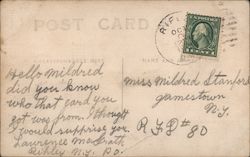 POST CARD
RIPLEY
Hello Mildred
did you know
who that card you
got was from. I thought
I would suprise you.
Laurence
Ripley N.Y.
Miss Mildred Stanford
Jamestown
N.Y.
R.F.D # 80